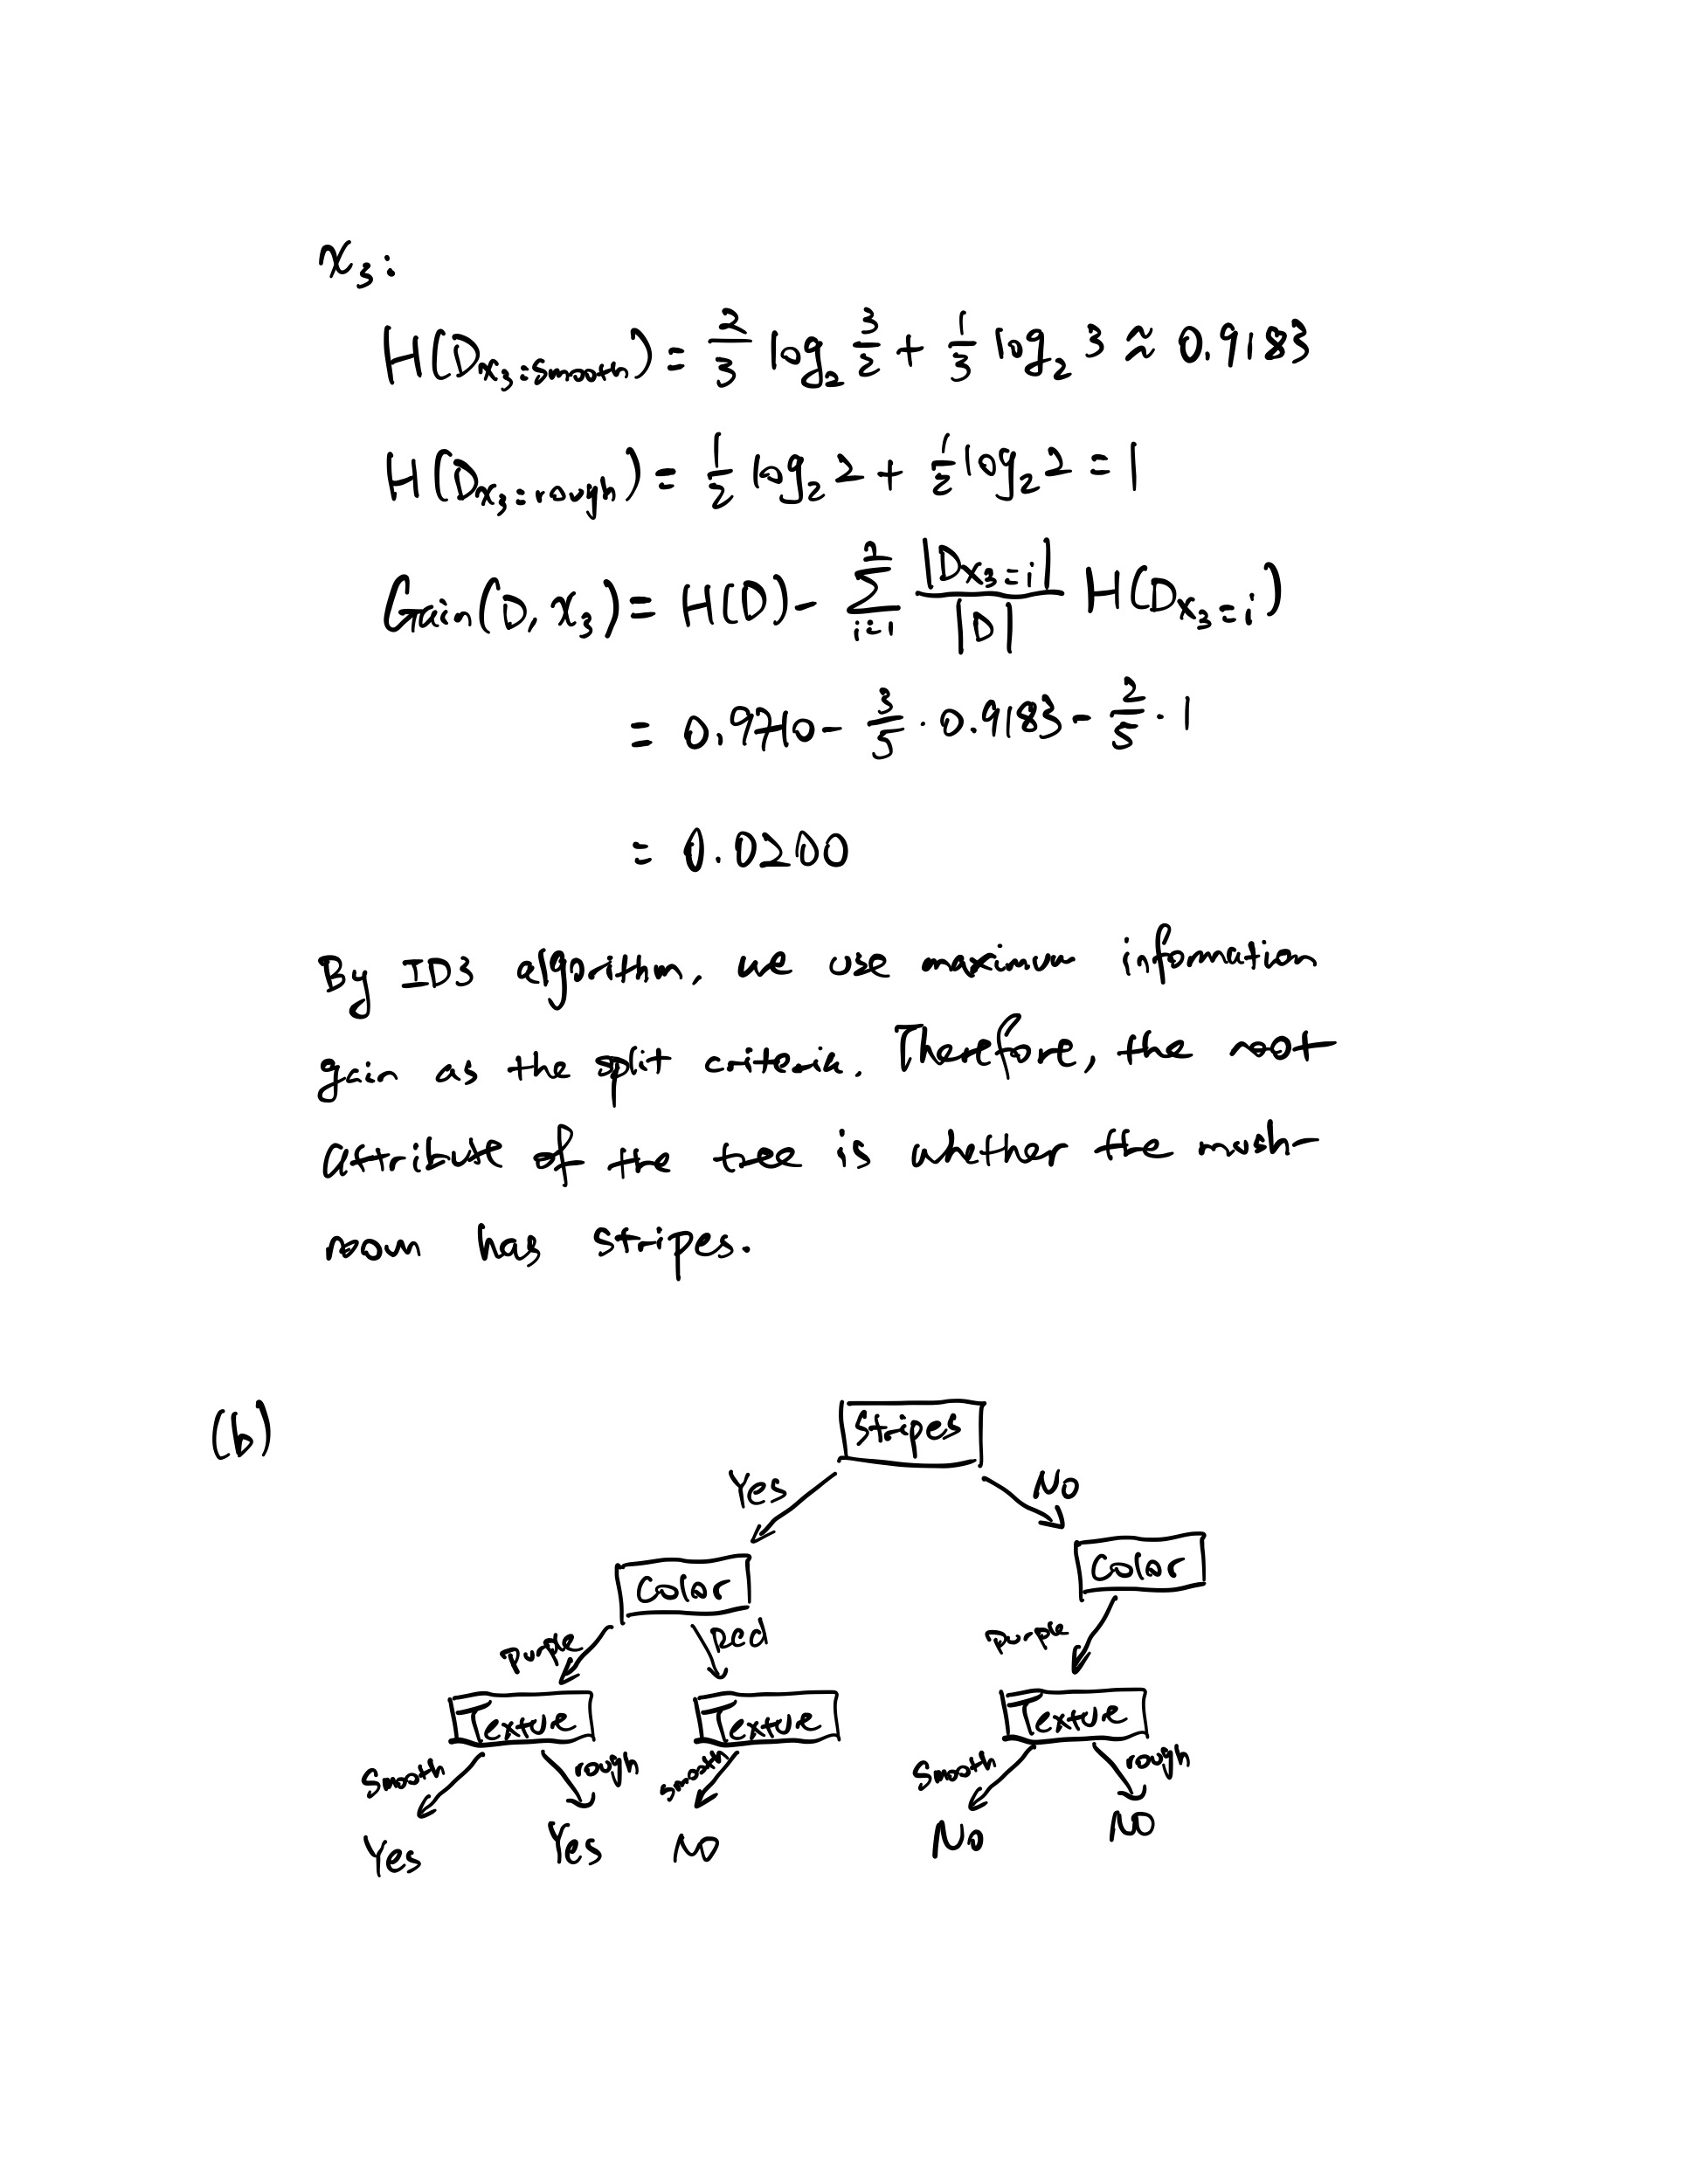 x₃:
H(D_{x₃=smooth}) = 2/3 log₂ 3/2 + 1/3 log₂ 3 ≈ 0.9183
H(D_{x₃=rough}) = 1/2 log₂ 2 + 1/2 log₂ 2 = 1
Gain(D, x₃) = H(D) - ∑_{i=1}^{2} |D_{x₃=i}|/|D| H(D_{x₃=i})
= 0.9710 - 3/5 · 0.9183 - 2/5 · 1
= 0.0200
By ID3 algorithm, we use maximum information
gain as the split criteria. Therefore, the root
attribute of the tree is whether the mush-
room has stripes.
(b)
Stripes
Yes No
Color Color
purple Red purple
Texture Texture Texture
Smooth rough smooth Smooth rough
Yes Yes No No No